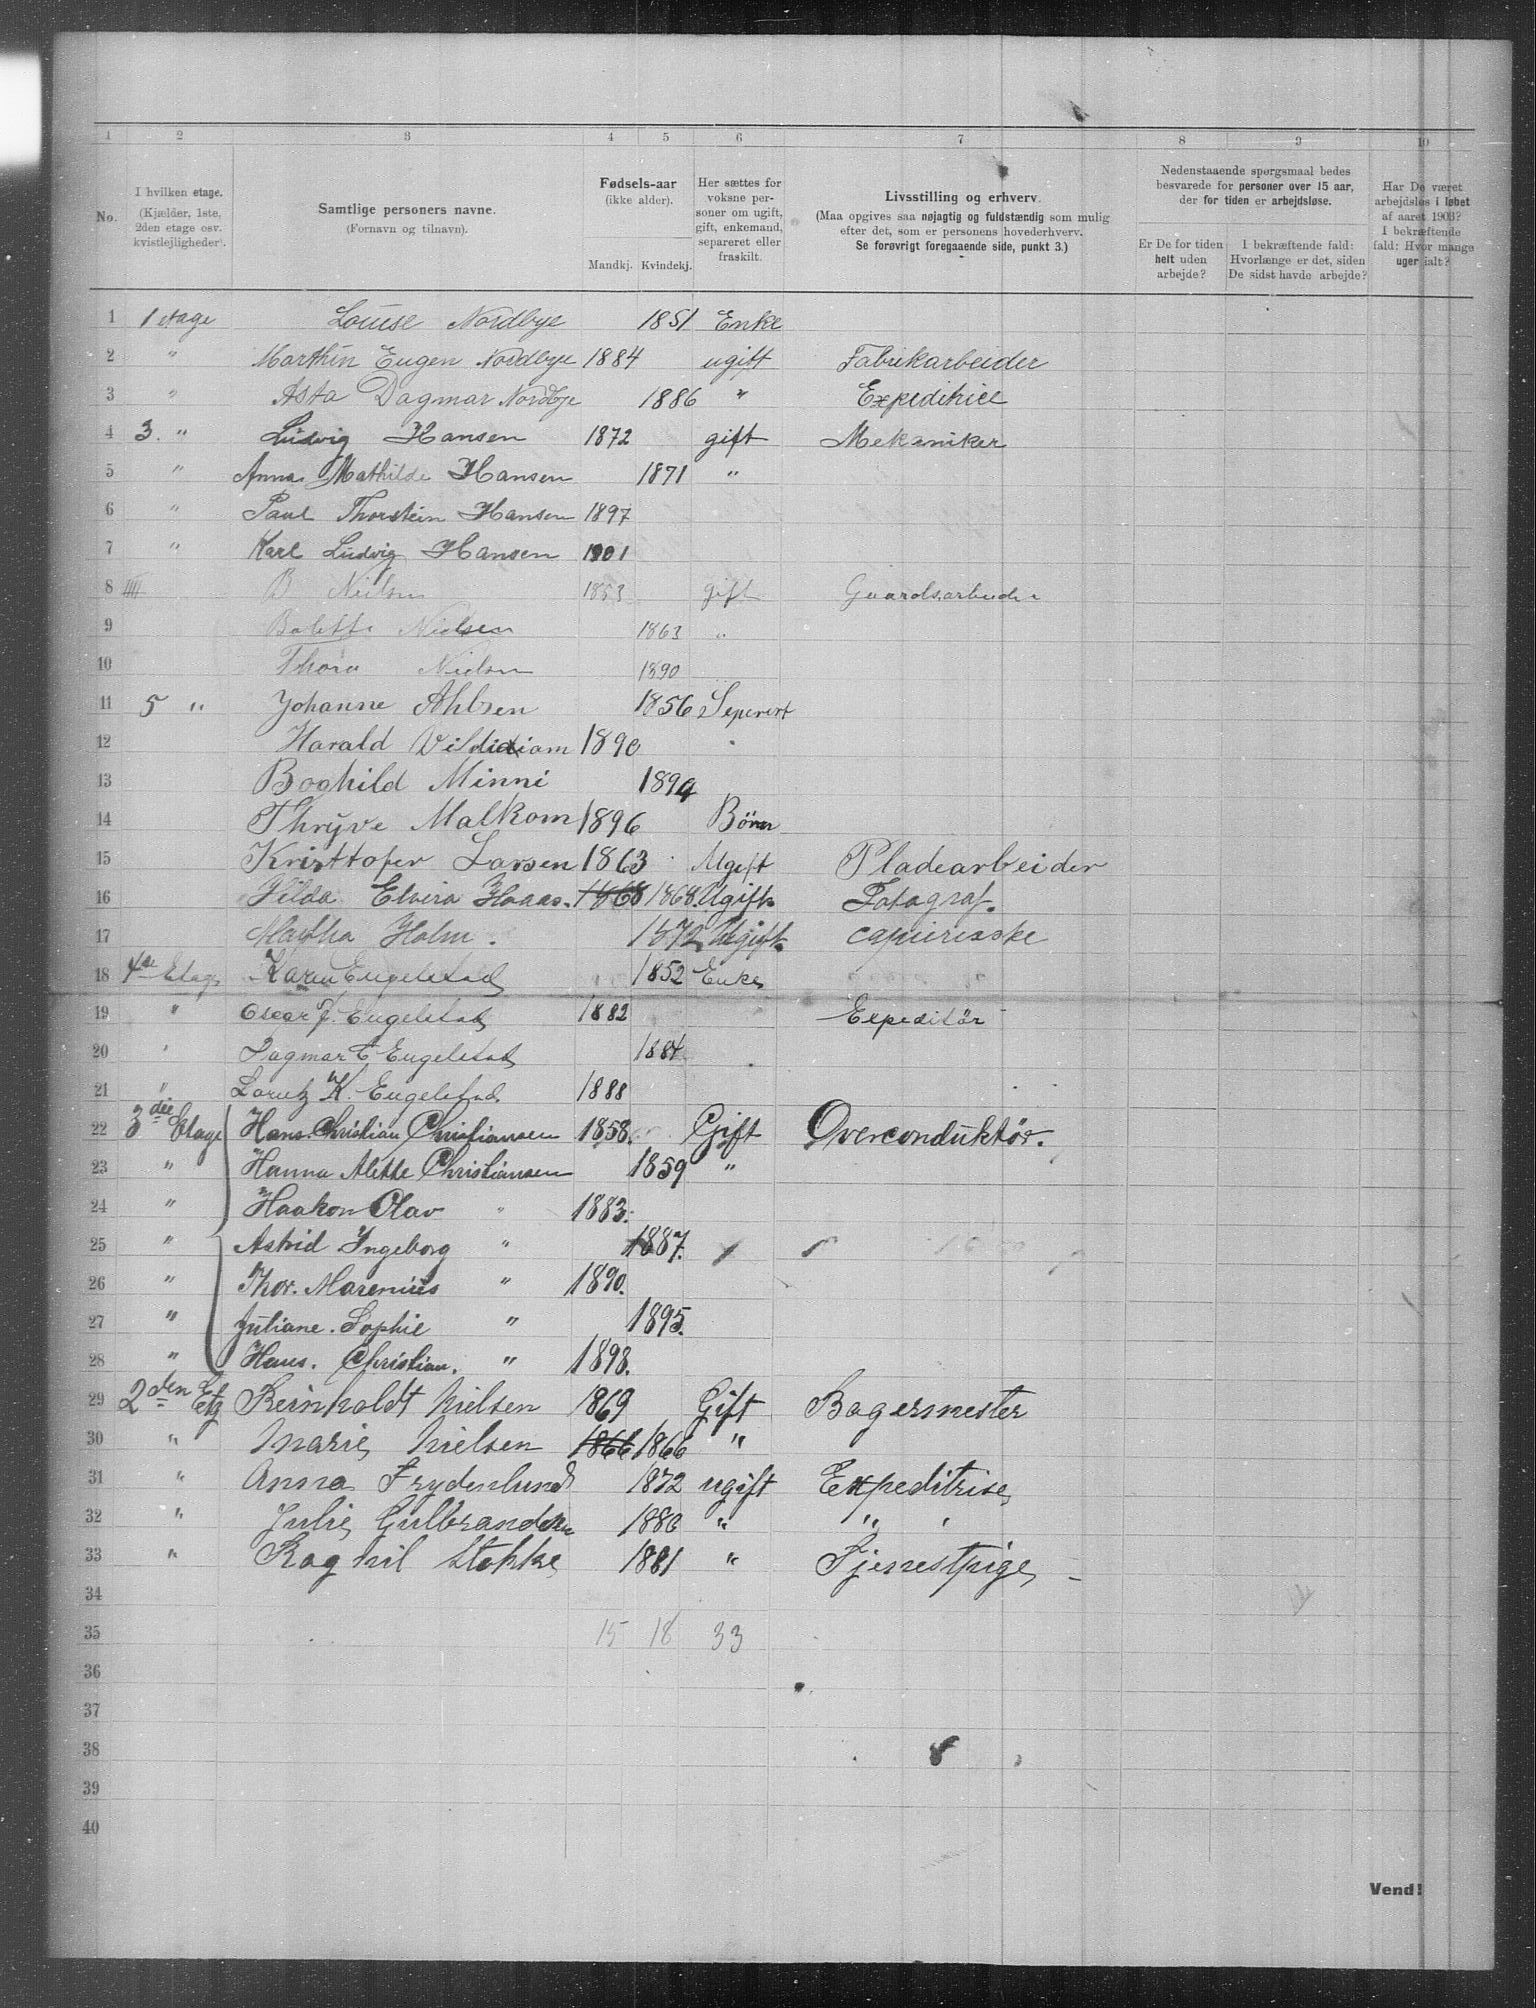 1 2 3 4 5 6 7 8 9 10
No.
I hvilken etage.
(Kjælder, 1ste,
2den etage osv.
kvistleiligheder).
Samtlige personers navne.
(Fornavn og tilnavn).
Fødsels-aar
(ikke alder).
Mandkj. Kvindekj.
Her sættes for
voksne per-
soner om ugift,
gift, enkemand,
separeret eller
fraskilt.
Livsstilling og erhverv.
(Maa opgives saa nøjagtig og fuldstændig som mulig
efter det, som er personens hovederhverv.
Se forøvrigt foregaaende side, punkt 3.)
Nedenstaaende spørgsmaal bedes
besvarede for personer over 15 aar,
der for tiden er arbejdsløse.
Er De for tiden
helt uden
arbejde?
I bekræftende fald:
Hvorlænge er det, siden
De sidst havde arbejde?
Har De været
arbejdsløs i løbet
af aaret 1903?
I bekræftende
fald: Hvor mange
uger ialt?
1 1 etage Louise Nordbye 1851 Enke
2 " Marthin Eugen Nordbye 1884 ugift Fabrikarbeider
3 " Asta Dagmar Nordbye 1886 " Expeditrice
4 3. " Ludvig Hansen 1872 gift Mekaniker
5 " Anna Mathilde Hansen 1871 "
6 " Paul Thorstein Hansen 1897
7 " Karl Ludvig Hansen 1901
8 IIII B Nielsen 1853 gift Gaardsarbeider
9 Bolette Nielsen 1863 "
10 Thora Nielsen 1890
11 5 " Johanne Ahlsen 1856 Seperert
12 Harald 1890
13 Boghild Minni 1894
14 Thryve Malkom 1896 Börn
15 Kristtofer Larsen 1863 Ugift Pladearbeider
16 Hilda Elvira Haaas. 1868 1868. Ugift Fotograf.
17 Martha Holm. 1872 Ugift. copieriske
18 4de Etage Karen Engelstad 1852 Enke
19 " Oscar J. Engelstad 1882 Expeditör
20 " Dagmar E Engelstad 1884
21 " Lorntz K. Engelstad. 1888
22 3die Etage Hans. Christian Christiansen 1858. Gift Overconduktör.
23 " Hanna Alette Christiansen 1859 "
24 " Haakon Olav " 1883.
25 " Astrid Ingeborg " 1887.
26 " Thor. Marenius " 1890.
27 " Juliane. Sophie " 1895.
28 " Hans. Christian. " 1898.
29 2den Etg Reinholdt Nielsen 1869 Gift Bagermester
30 " Marie Nielsen 1866 1866 "
31 " Anna Frydenlund 1872 ugift Expeditrise
32 " Julie Gulbrandsen 1880 " "
33 " Ragnhil Stokke 1881 " Tjenestpige
34
35 15 18 33
36
37
38
39
40
Vend!